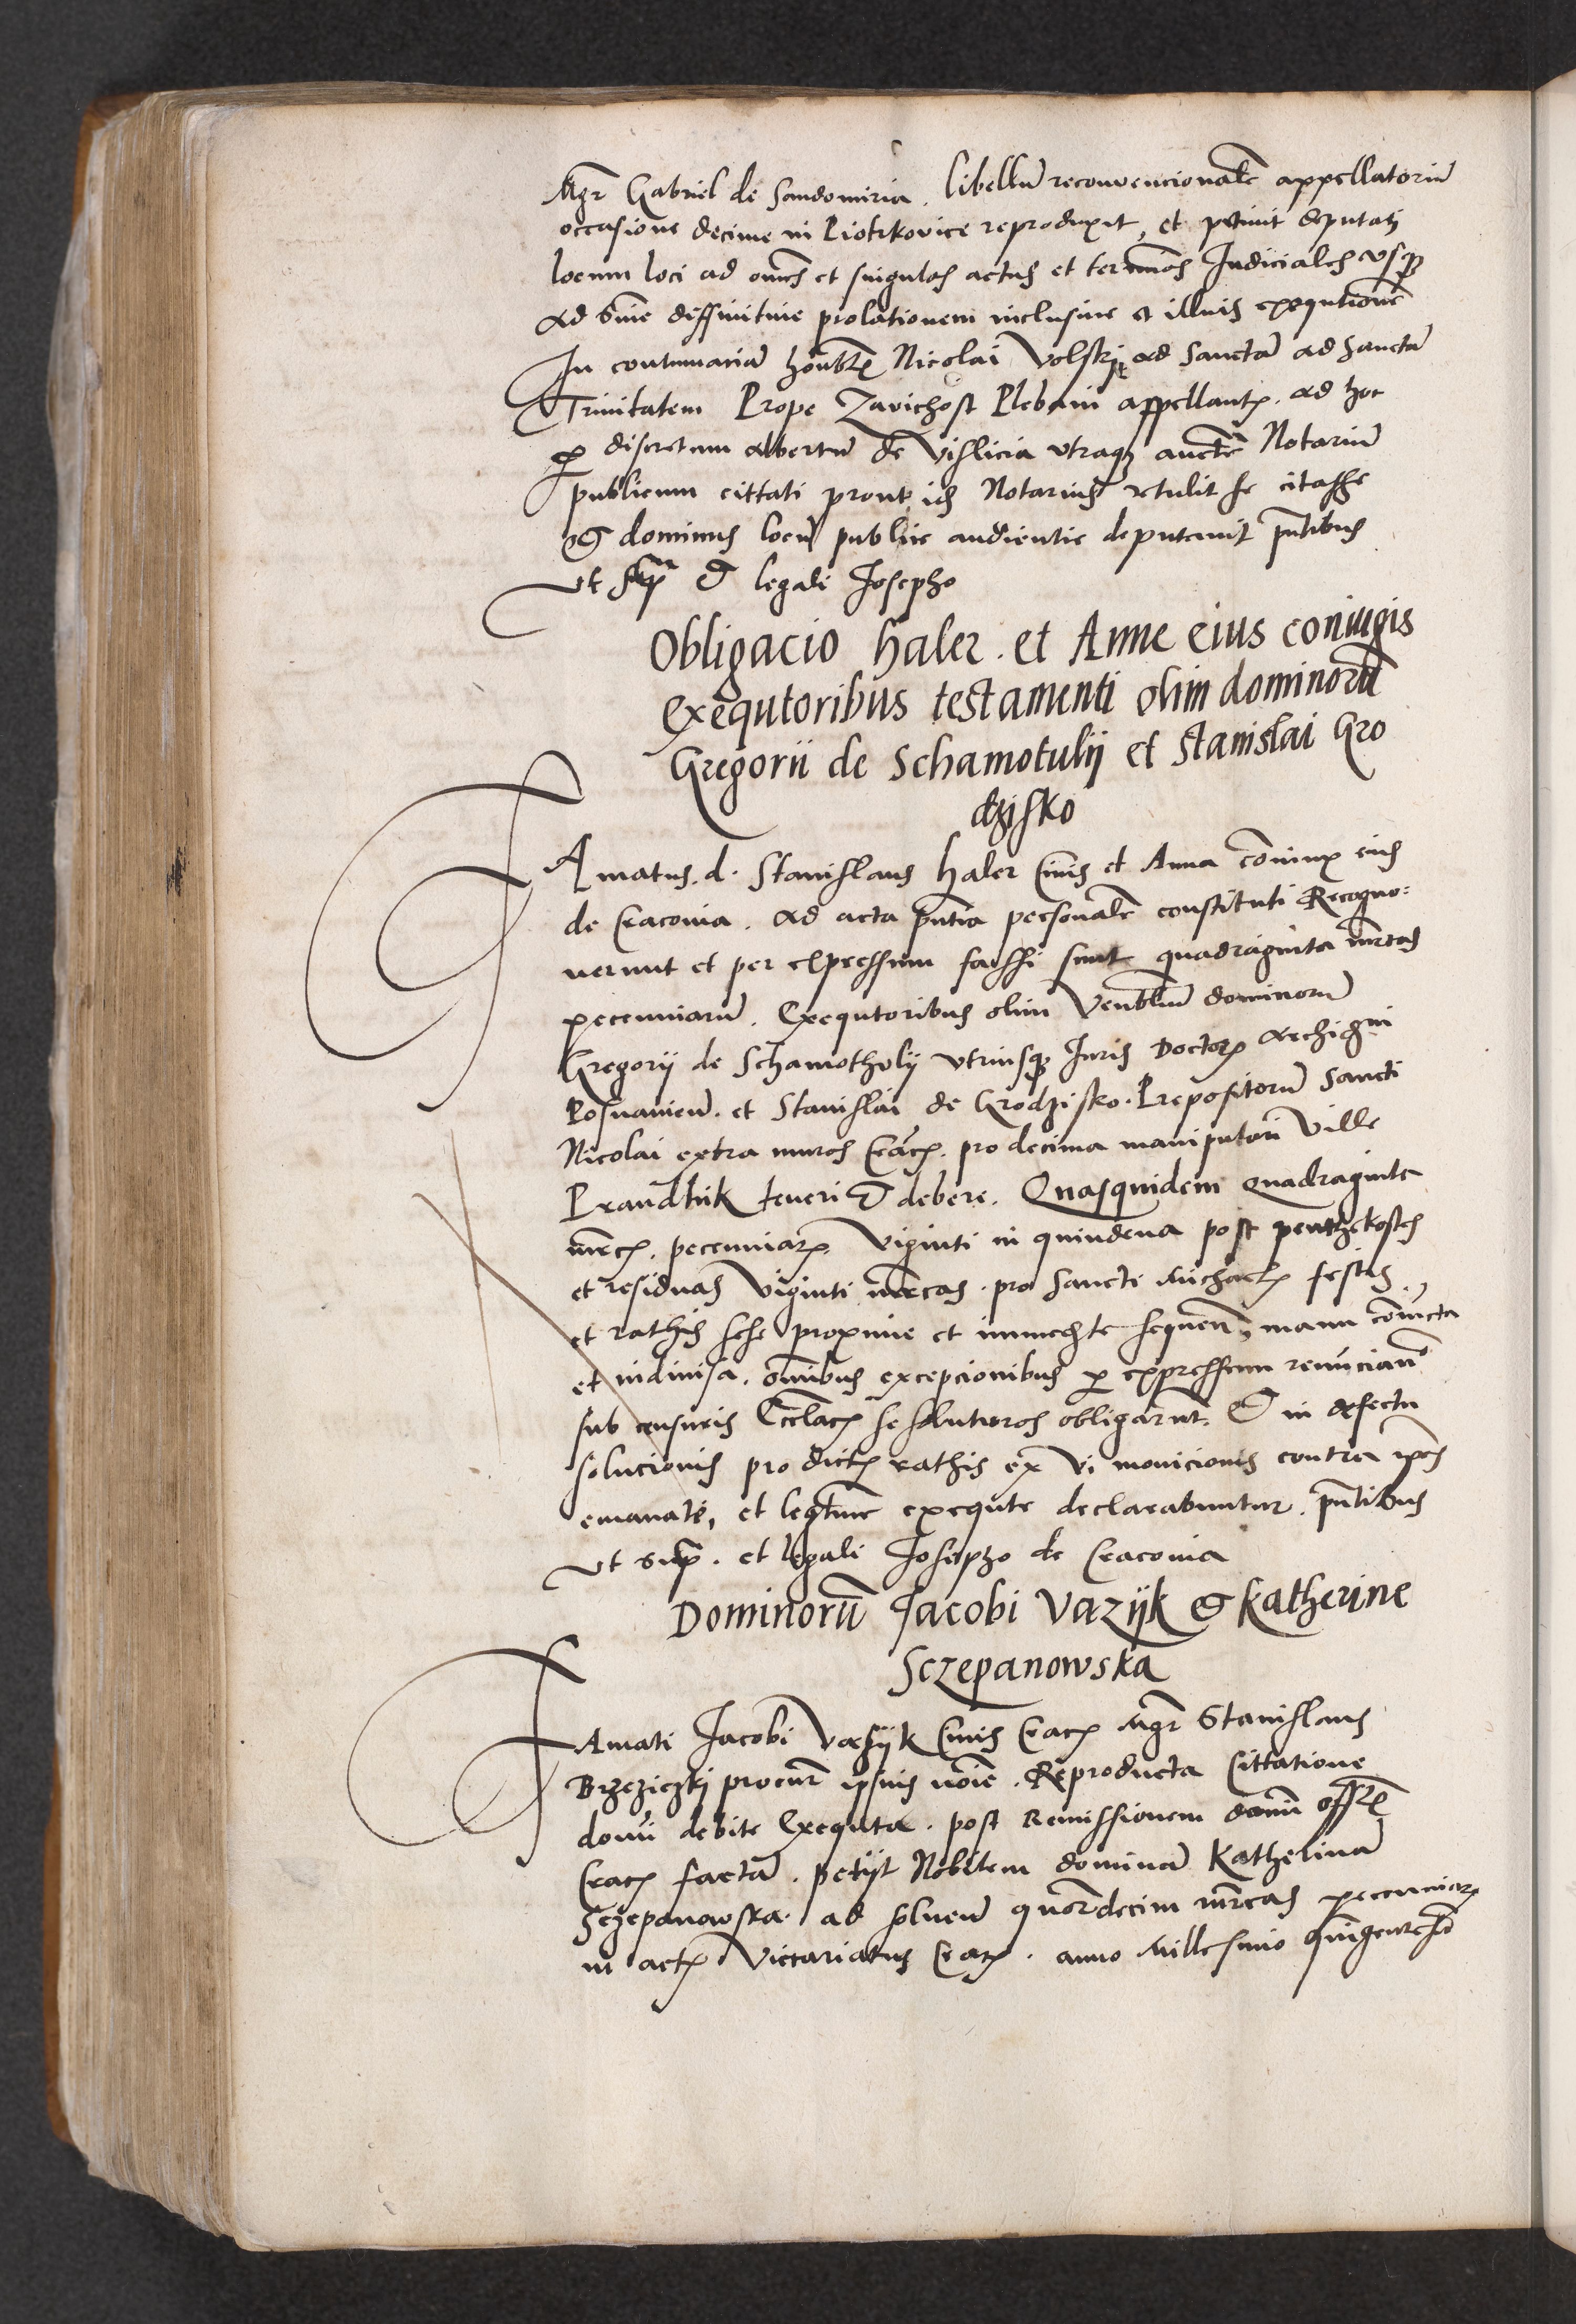 Mgr Gabriel de Sandomiria. libellū reconvencionalē appellatoriū
occasione decime in Piotrkovice reproduxit, et petivit deputari
locum loci ad oms et singulos actus et termīos Iudiciales usqꝫ
ad snīe diffinitive prolationem inclusive et illius exequtionē
In contumaciā honblis Nicolai Volskij ad Sanctā ad Sanctā
Trinitatem Prope Zavichost Plebani appellantis. ad hoc
ꝑ discretum Albertū de Vislicia utraqꝫ aucte Notariū
publicum cittati prout ids Notarius retulit se citasse
Et dominus locū publice audientie deputavit pntibus
ut supra et legali Iosepho
Obligacio haler. et Anne eius coniugis
exequtoribus testamenti olim dominorū
Gregorii de Schamotulij et Stanislai Gro
dzisko
FAmatus. d. Stanislaus haler Civis et Anna coniunx eius
de Cracovia. ad acta pntia personalr constituti Recogno:
verunt et per expressum fassi sunt quadraginta mrcas
pecuniarū. Exequtoribus olim Venbliū dominorū
Gregorij de Schamotholij utriusqꝫ Iuris Doctoris Archigni
Posnanien. et Stanislai de Grodzisko. Prepositorū Sancti
Nicolai extra muros Crac. pro decima manipulari Ville
Prandnik teneri et debere. Quasquidem quadraginta
mrcas. pecuniarꝝ. Viginti in quindena post penthekostes
et residuas Viginti mrcas. pro Sancti Michaelis festis
et rathis sese proxime et immediate sequen. manu coniūcta
et indivisa. omibus excepcionibus ꝑ expressum renūcian.
sub censuris Eccliacis se soluturos obligarūt. Et in defectu
solucionis pro dictis rathis ex vi monicionis contra ipos
emanate, et legitime exequte declarabuntur. pntibus
ut supra. et legali Iosepho de Cracovia
Dominorū Jacobi Vazijk et Katherine
Sczepanowska
FAmati Jacobi Vasijk Civis Crac Mgr Stanislaus
Brzeziczkj procur ipsius noīe. Reproducta Cittatione
domi debite Exequta. post Remissionem domī offlis
Crac factā. petijt Nobilem dominā Katherinā
Sczepanowska. ad solven quordecim mrcas pecuniarꝝ
in actis Viccariatus Crac. anno Millesimo quingentesiō